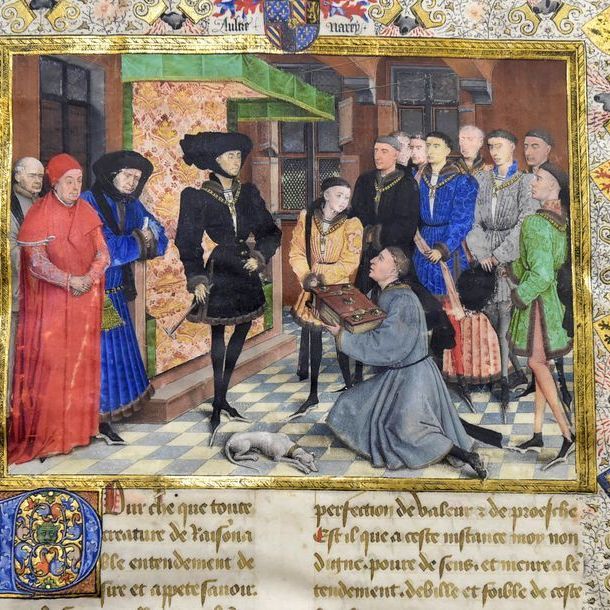 Aultre Narey
Pour che que toute
creature de raisona
ble entendement de
sire et appete sauoir.
perfection de valeur & de proesche
Est il que a ceste instance moy non
digne, poure de sens, et meure
tendement, debille et foible de ceste